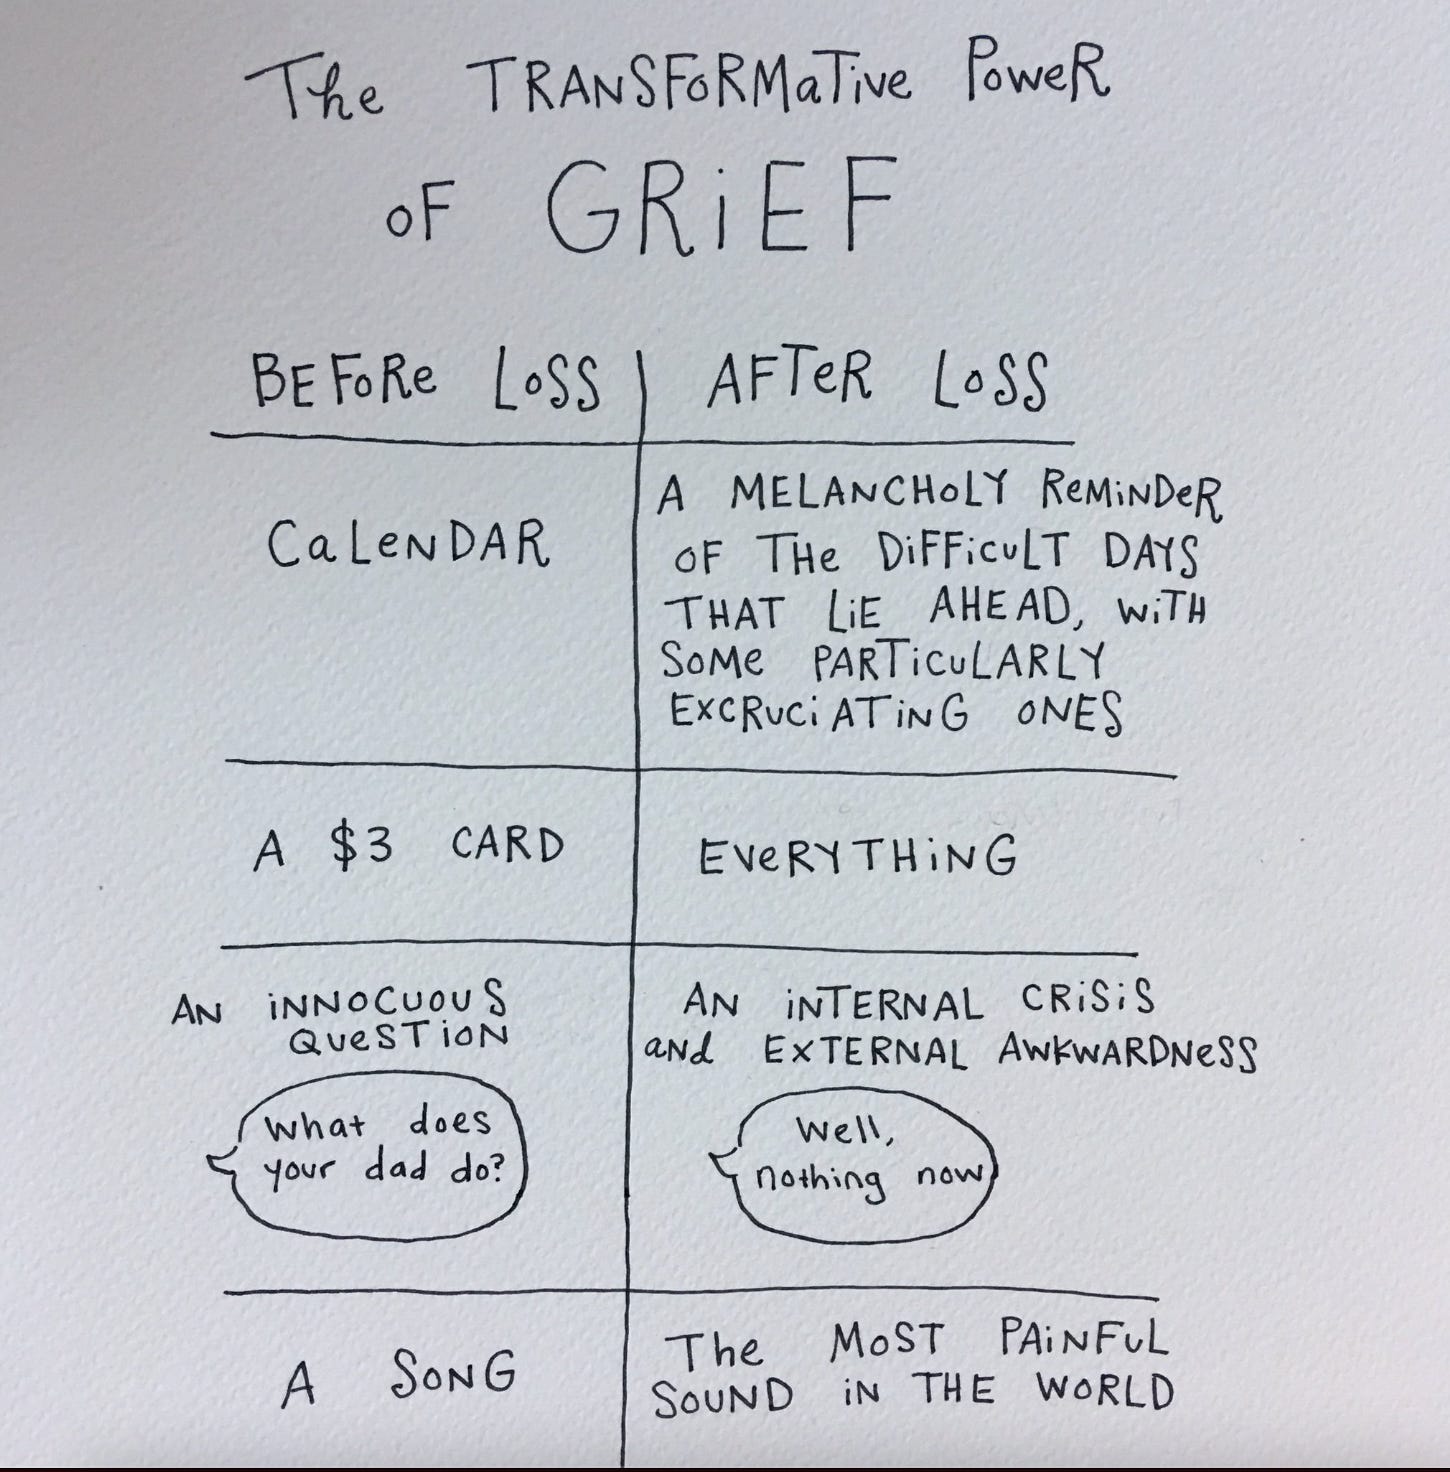 The TRANSFORMaTive PoweR
oF GRiEF
BEFoRe LoSS
AFTeR LoSS
CaLeNDAR
A MELANCHoLY ReMiNDeR
oF THe DiFFicuLT DAYS
THAT LiE AHEAD, WiTH
SoMe PARTicuLARLY
EXCRuCiATiNG ONES
A $3 CARD
EVeRYTHiNG
AN iNNOCUOUS
QUeSTiON
What does
your dad do?
AN iNTERNAL CRiSiS
aNd EXTERNAL AWKWARDNeSS
Well,
nothing now
A SoNG
The MoST PAiNFuL
SOUND iN THE WORLD